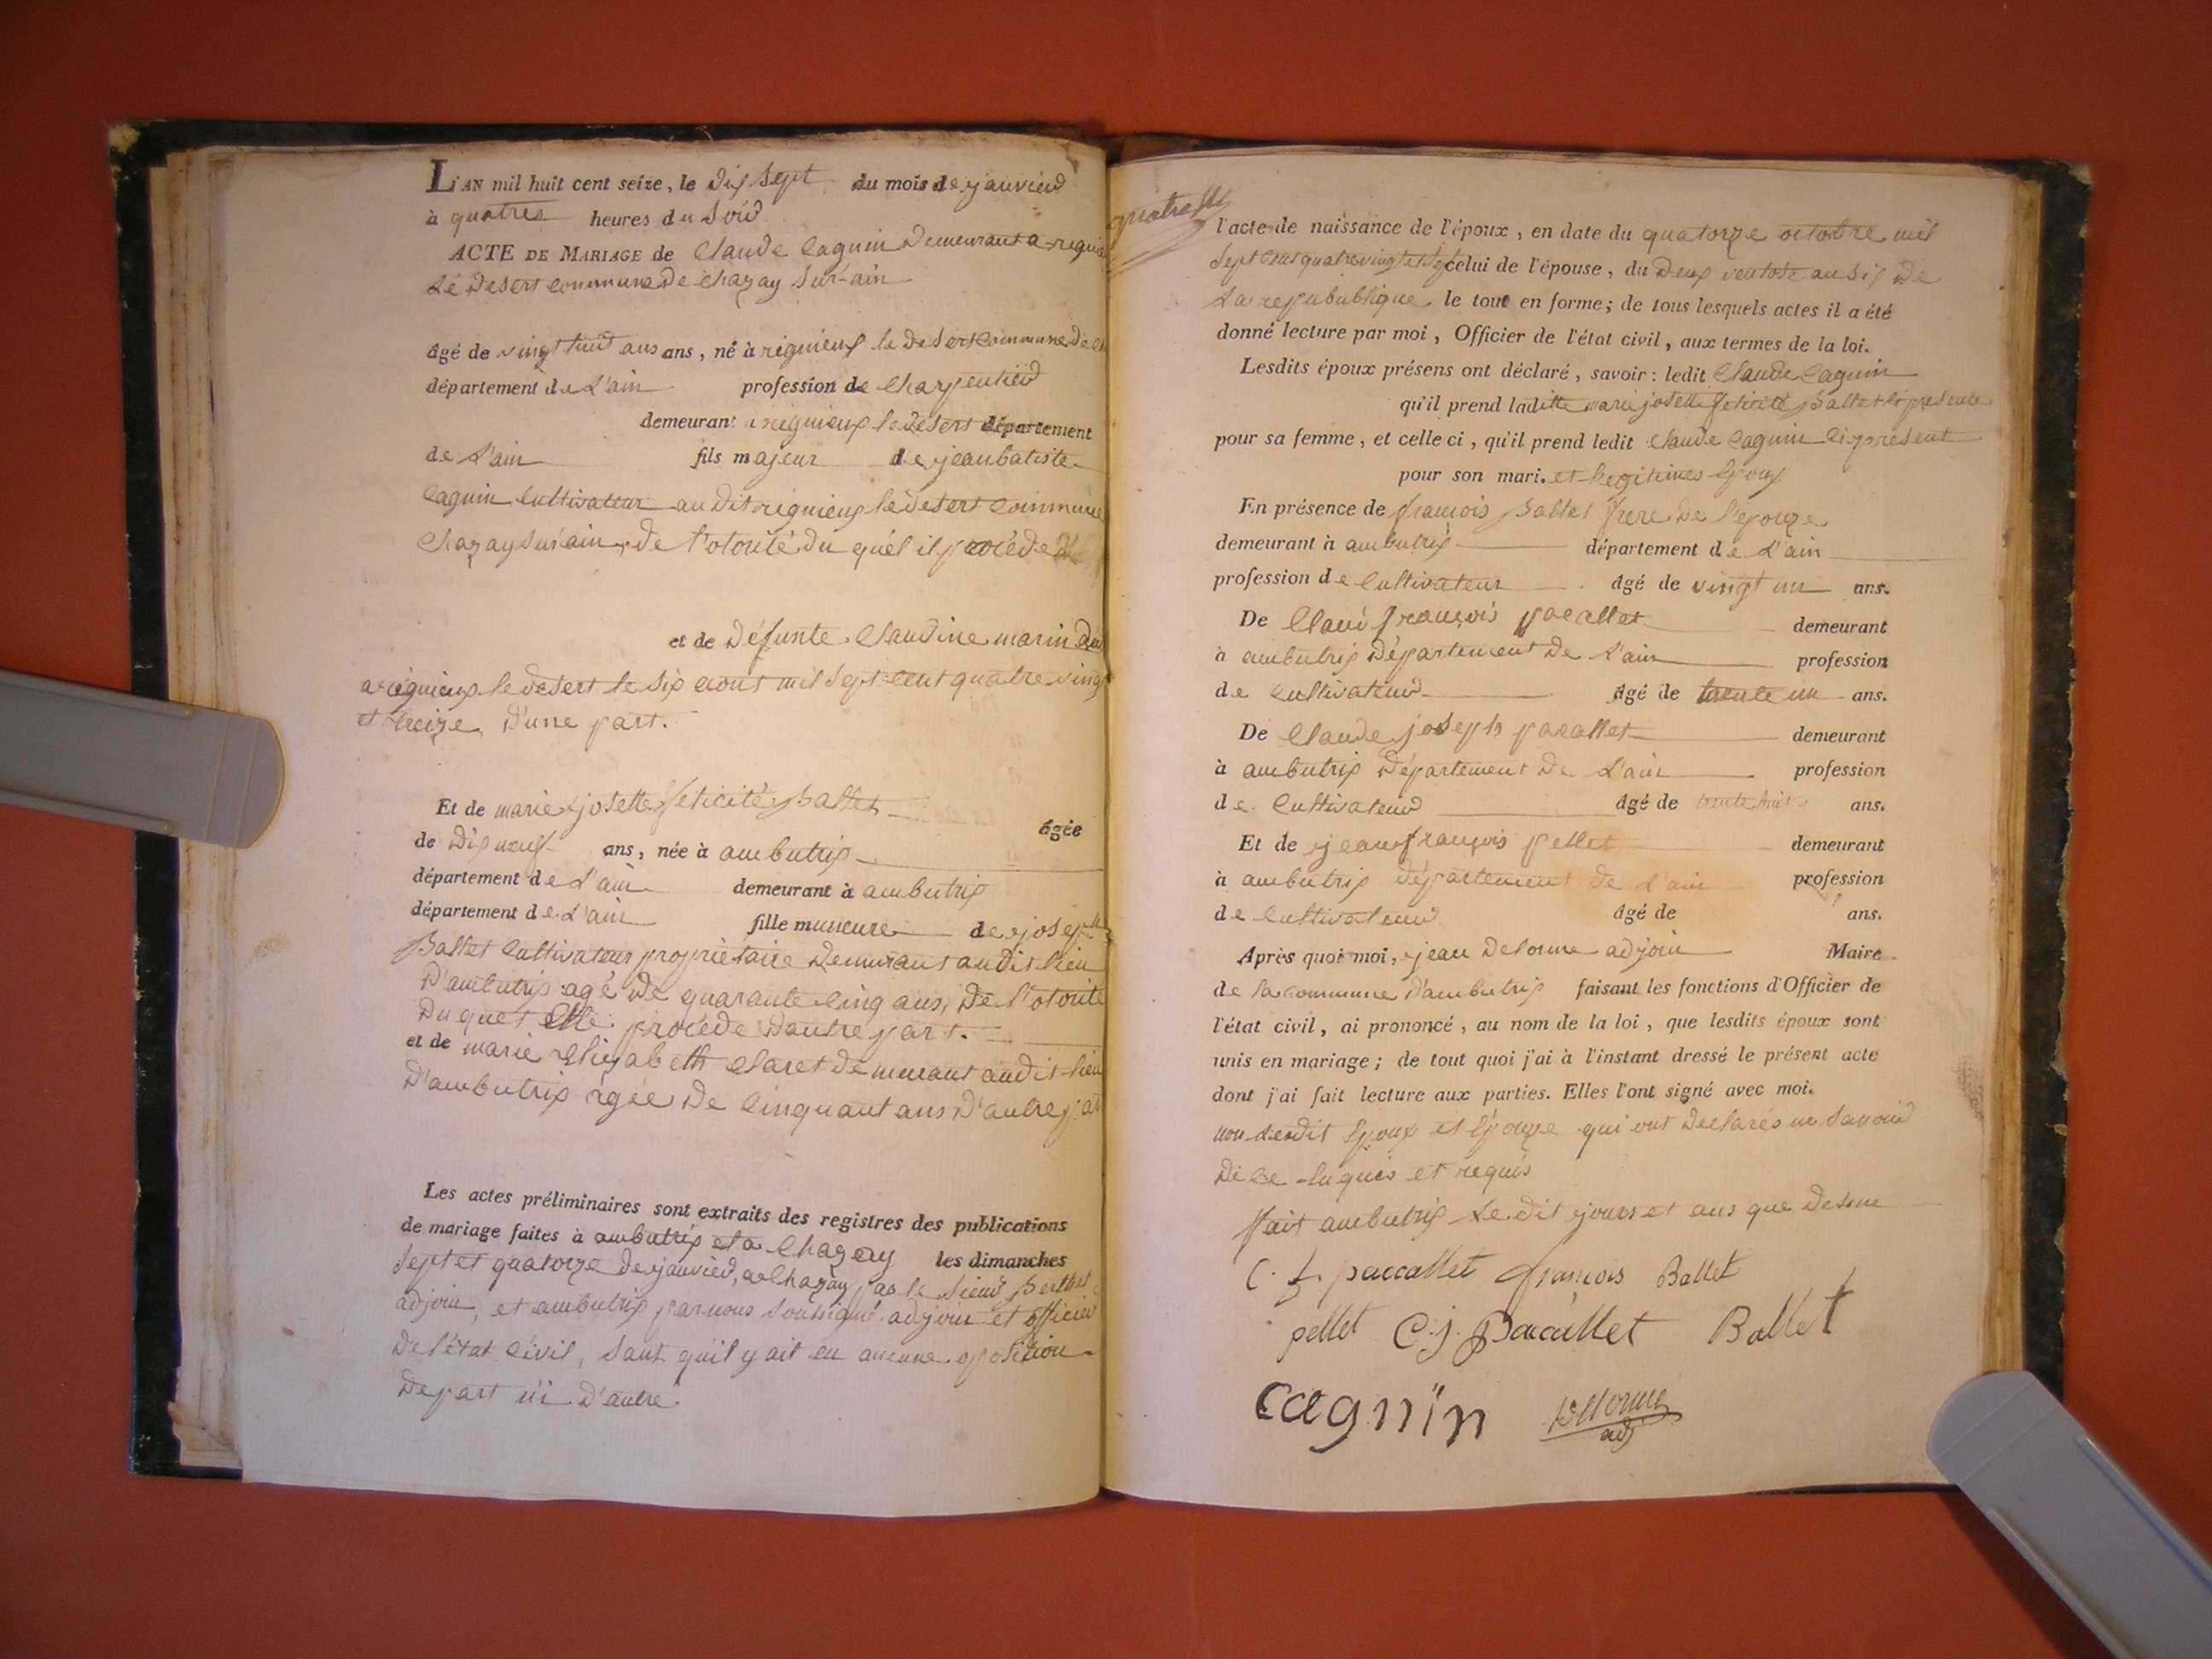 L'AN mil huit cent seize, le dix Sept du mois de janvier
à quatres heures du Soir
ACTE DE MARIAGE de Claude Cagnin Demeurant a
Le Desert commune De Chazay Sur-ain
âgé de vingt huit ans ans, né à rignieux le Desert Commune De
département de L'ain profession de Charpentier
demeurant rignieux le Desert département
de L'ain fils majeur de jean batiste
Cagnin Cultivateur au Dit rignieux le Desert Commune
Chazay Sur ain, De l'otorité du quel il procéde
et de Défunte Claudine marin
a rignieux le Desert le Six aout mil Sept cent quatre vingt
et treize, D'une part.
Et de marie josette felicité Ballet
âgée
de Dix neuf ans, née à ambutrix
département de L'ain demeurant à ambutrix
département de L'ain fille mineure de joseph
Ballet Cultivateur propriètaire Demeurant au Dit lieu
D'ambutrix agé De quarante Cinq ans, De l'otorité
Du quel Elle procede D'autre part.
et de marie Elizabeth Claret Demeurant audit lieu
D'ambutrix agée De Cinquant ans D'autre part
Les actes préliminaires sont extraits des registres des publications
de mariage faites à ambutrix et a Chazay les dimanches
Sept et quatorze De janvier, a Chazay par le Sieur Berthet
adjoin, et ambutrix par nous Soussigné adjoin et officier
De l'état Civil, Sant qu'il y ait eu aucune oposition
De part ni D'autre
quatre
l'acte de naissance de l'époux, en date du quatorze octobre mil
Sept Cent quatre vingt et Sept celui de l'épouse, du Deux ventose an Six De
La repubublique le tout en forme; de tous lesquels actes il a été
donné lecture par moi, Officier de l'état civil, aux termes de la loi.
Lesdits époux présens ont déclaré, savoir: ledit Claude Cagnin
qu'il prend laditte marie josette felicité Ballet ci presente
pour sa femme, et celle ci, qu'il prend ledit Claude Cagnin Ci présent
pour son mari. et legitimes Epoux
En présence de françois Ballet frere De l'epouze
demeurant à ambutrix département de L'ain
profession de Cultivateur âgé de vingt un ans.
De Claud françois pacallet demeurant
à ambutrix Département De L'ain profession
de Cultivateur âgé de trente un ans.
De Claude joseph pacallet demeurant
à ambutrix Département De L'ain profession
de Cultivateur âgé de trente huit ans.
Et de jean françois pellet demeurant
à ambutrix département de L'ain profession
de Cultivateur âgé de ans.
Après quoi moi, jean Delorme adjoin Maire
de la commune D'ambutrix faisant les fonctions d'Officier de
l'état civil, ai prononcé, au nom de la loi, que lesdits époux sont
unis en mariage; de tout quoi j'ai à l'instant dressé le présent acte
dont j'ai fait lecture aux parties. Elles l'ont signé avec moi.
non Lesdit Epoux et Epouze qui ont Declarés ne Savoir
De Ce enquis et requis
fait ambutrix Le dit jours et ans que Dessus
C. f. paccallet françois Ballet
pellet C. j. Pacallet Ballet
cagnin Delorme
adj